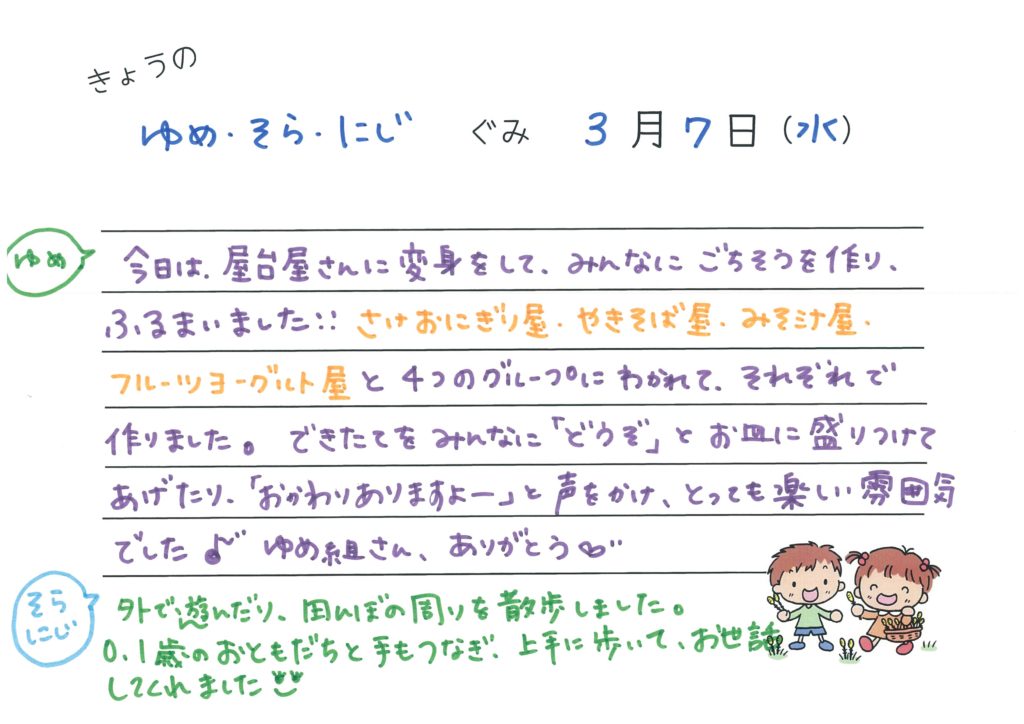 きょうの
ゆめ・そら・にじ ぐみ 3月7日(水)
ゆめ
今日は、屋台屋さんに変身をして、みんなに ごちそうを作り、
ふるまいました!! さけおにぎり屋・やきそば屋・みそ汁屋・
フルーツヨーグルト屋 と 4つのグループに わかれて、それぞれで
作りました。 できたてを みんなに「どうぞ」と お皿に 盛りつけて
あげたり、「おかわりありますよー」と 声をかけ、とっても楽しい雰囲気
でした♪ ゆめ組さん、ありがとう♡
そら
にじ
外で遊んだり、田んぼの周りを散歩しました。
0、1歳のおともだちと手もつなぎ、上手に歩いて、お世話
してくれました